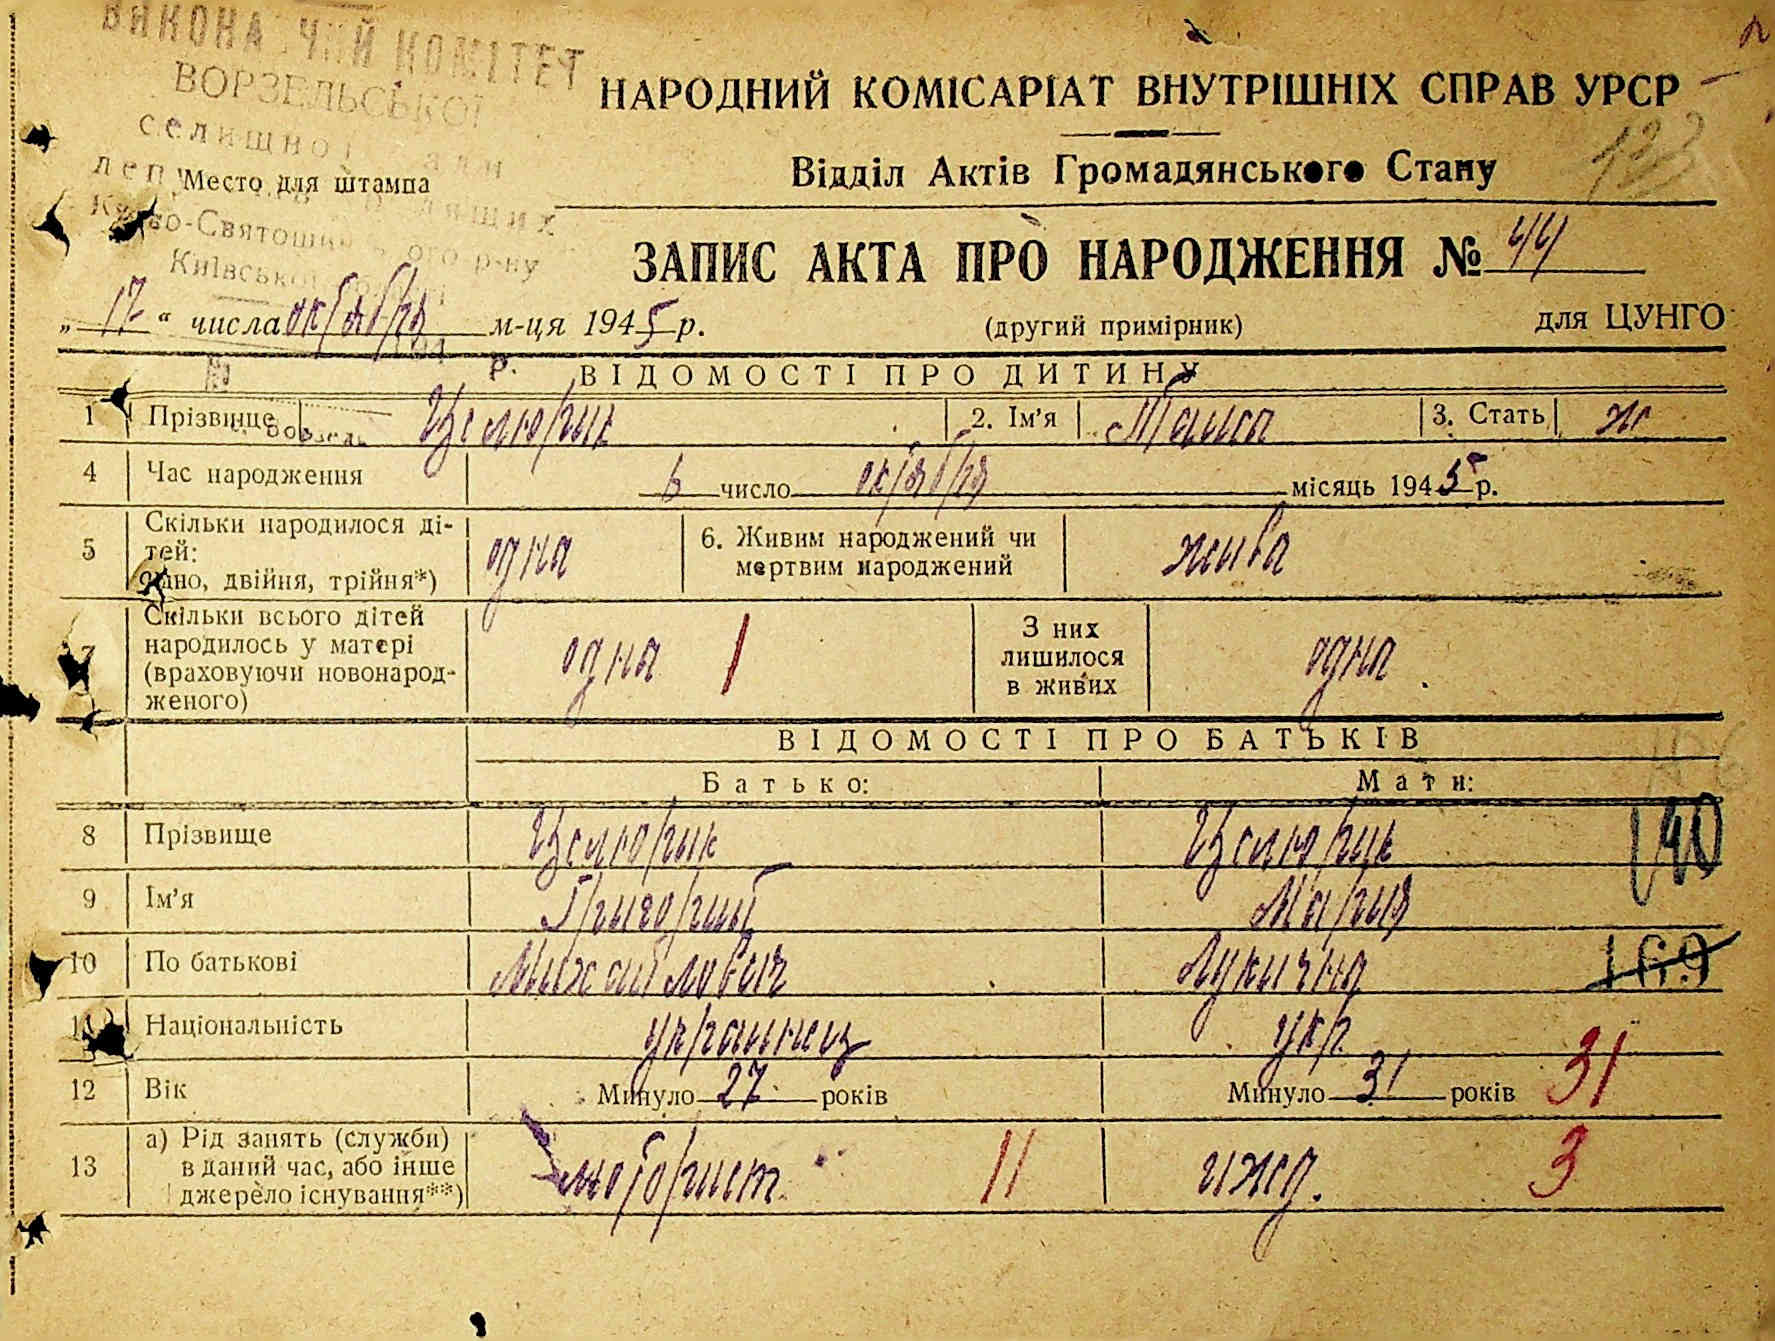 ВИКОНА ЧИЙ КОМІТЕТ
ВОРЗЕЛЬСЬКОЇ
селищної
Києво-Святошин ого р-ну
Київської
Место для штампа
НАРОДНИЙ КОМІСАРІАТ ВНУТРІШНІХ СПРАВ УРСР
133
Відділ Актів Громадянського Стану
ЗАПИС АКТА ПРО НАРОДЖЕННЯ № 44
„ 17 “ числа октября м-ця 1945 р.
(другий примірник)
для ЦУНГО
ВІДОМОСТІ ПРО ДИТИНУ
1 Прізвище Целюрик 2. Ім'я 3. Стать ж
4 Час народження 6 число октября місяць 1945 р.
5 Скільки народилося ді-
тей:
одно, двійня, трійня*) одна
6. Живим народжений чи
мертвим народжений жива
7 Скільки всього дітей
народилось у матері
(враховуючи новонарод-
женого) одна 1
З них
лишилося
в живих одна
ВІДОМОСТІ ПРО БАТЬКІВ
Батько: Мати:
8 Прізвище Целюрик Целюрик 140
9 Ім'я Григорий Мария
10 По батькові Михайлович Лукична 169
11 Національність украинец укр.
12 Вік Минуло 27 років Минуло 31 років 31
13 а) Рід занять (служби)
в даний час, або інше
джерело існування**) моторист 11 ижд. 3